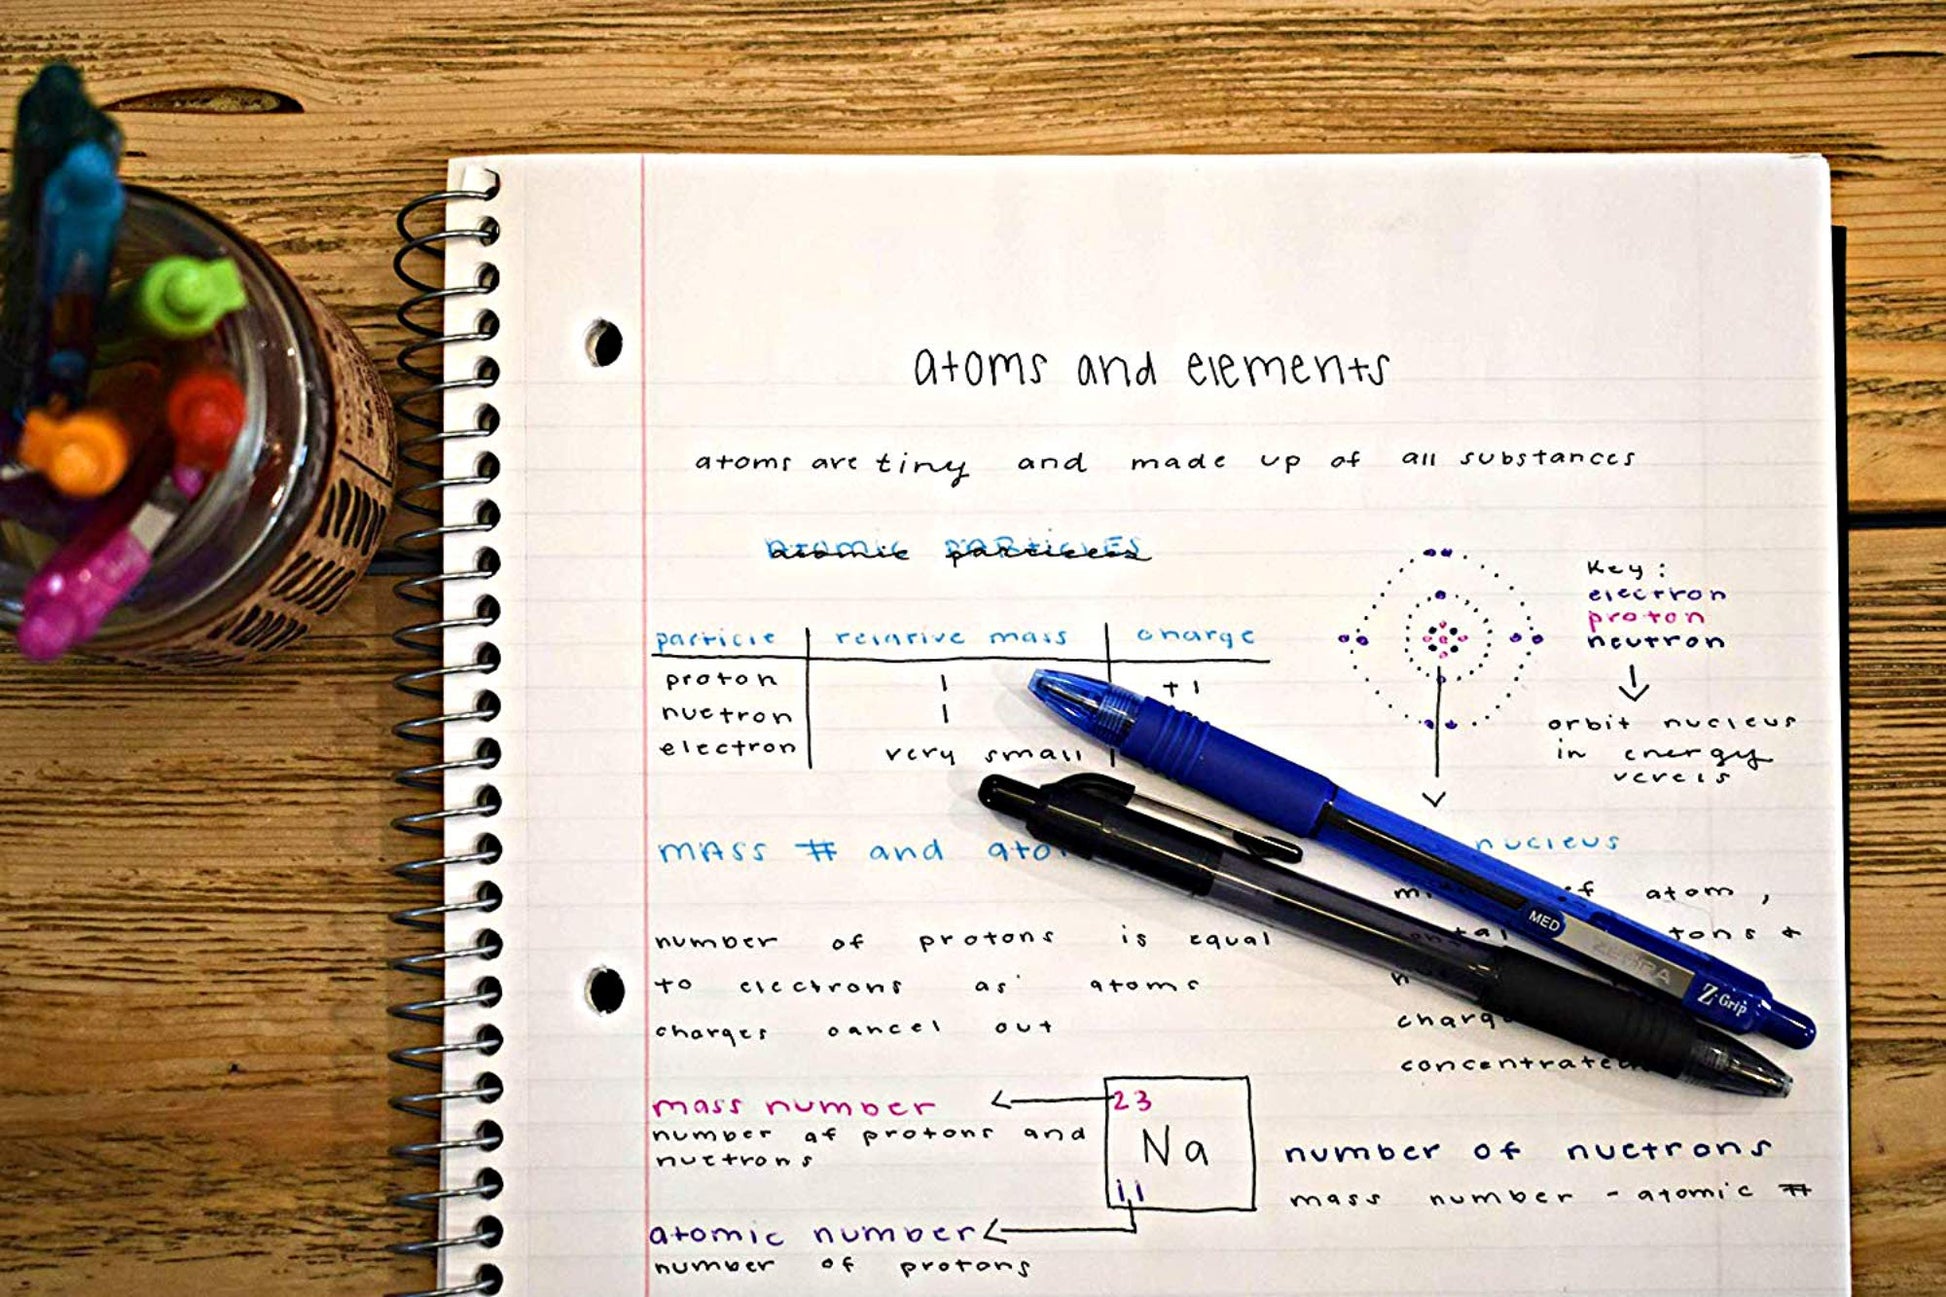 atoms and elements
atoms are tiny and made up of all substances
atomic particles
particle relative mass charge
proton 1 +1
nuetron 1
electron very small
Key:
electron
proton
neutron
orbit nucleus
in energy
mass # and
number of protons is equal
to electrons as atoms
charges cancel out
nucleus
of atom,
concentrated
mass number
number of protons and
nuetrons
23
Na
11
atomic number
number of protons
number of nuetrons
mass number - atomic #
MED
ZEBRA
Z-Grip